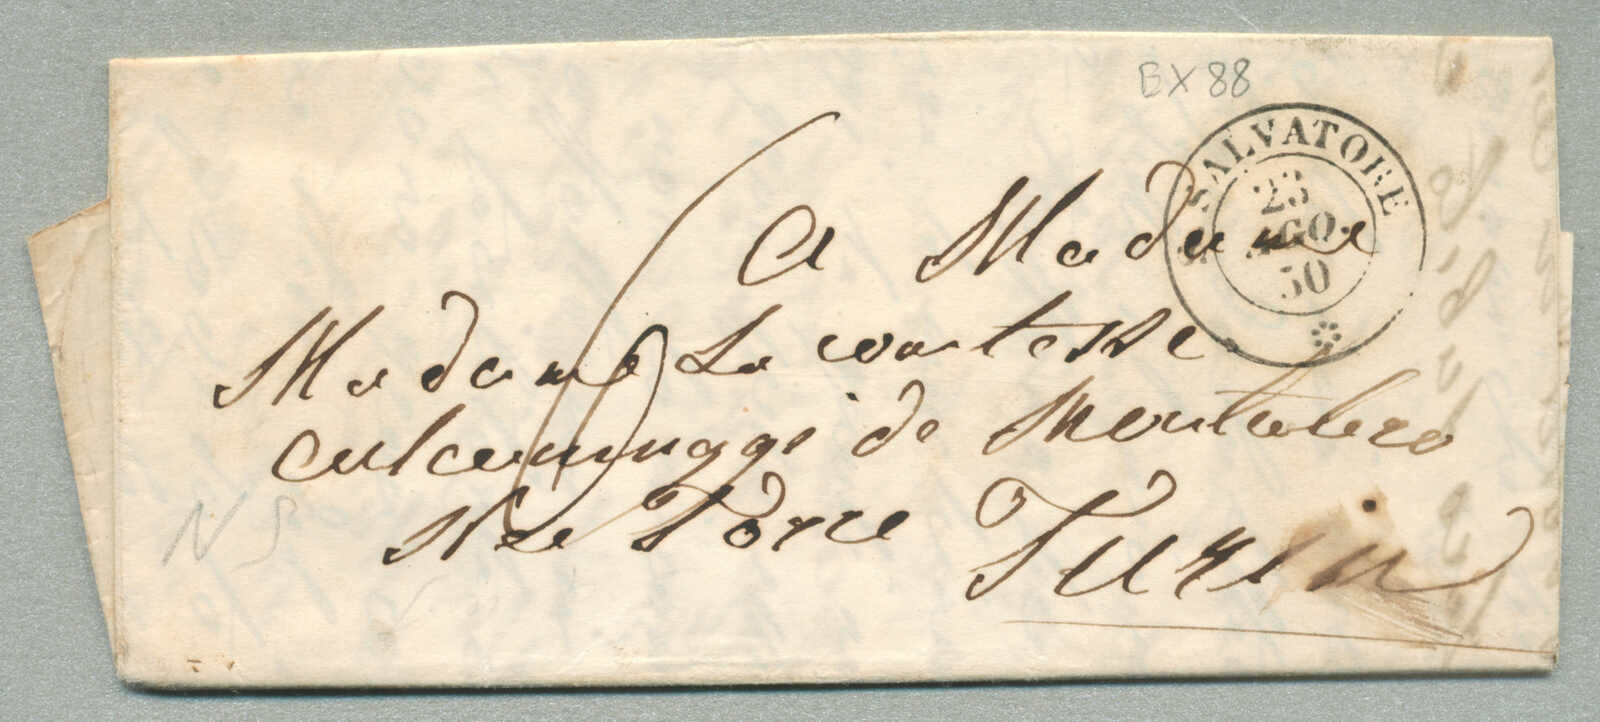 BX 88
S. SALVATORE
23
AGO.
50
A Madame
Madame La Comtesse
Calcamuggi de Montalero
Née Torre
Turin
N S